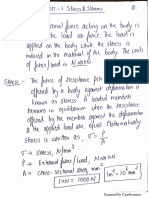 -1 Stress & Strains
force acting on the body is
the load or force. The load is
applied on the body while the stress is
induced in the material of the body. The units
of force/load is N or KN.
Stress :- The force of resistance per
offered by a body against deformation is
known as stress. A loaded member
when the resistance
offered by the member against the deformation
the applied load are equal. Mathematically
stress is written as, σ = P/A
σ → Stress, N/mm²
P → External force/Load, N or KN
A → cross-sectional area, mm²
1KN = 1000N
1m² = 10⁶ mm²
Scanned by CamScanner